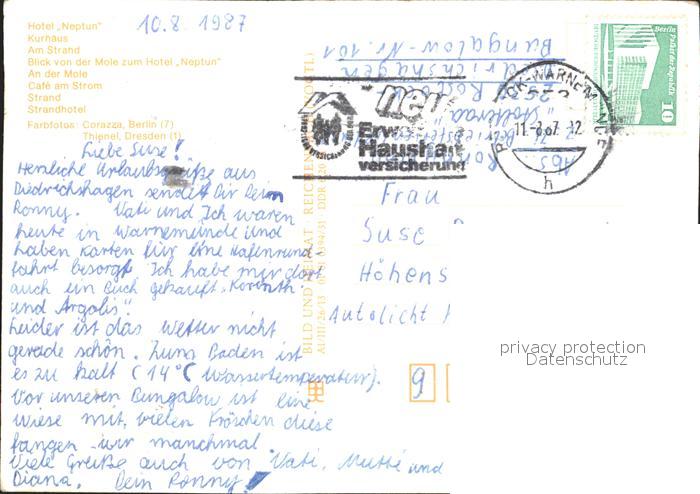 Hotel „Neptun“
Kurhaus
Am Strand
Blick von der Mole zum Hotel „Neptun“
An der Mole
Café am Strom
Strand
Strandhotel
Farbfotos: Corazza, Berlin (7)
Thienel, Dresden (1)
10.8.1987
Liebe Suse!
Herzliche Urlaubsgrüße aus
Diedrichshagen sendet Dir Dein
Ronny. Vati und Ich waren
heute in Warnemünde und
haben Karten für eine Hafenrund-
fahrt besorgt. Ich habe mir dort
auch ein Buch gekauft „Korinth
und Argolis“.
Leider ist das Wetter nicht
gerade schön. Zum Baden ist
es zu kalt (14°C Wassertemperatur).
Vor unseren Bungalow ist eine
Wiese mit vielen Fröschen diese
fangen wir manchmal.
Viele Grüße auch von Vati, Mutti und
Diana. Dein Ronny!
BILD UND HEIMAT REICHENBACH (VOGTL)
A1/III/26/13
Abs.
Bungalow-Nr. 101
neu
Erw
Haushalt
versicherung
11-8.87-12
h
10
Frau
Suse
Höhens
Autolicht
9
privacy protection
Datenschutz